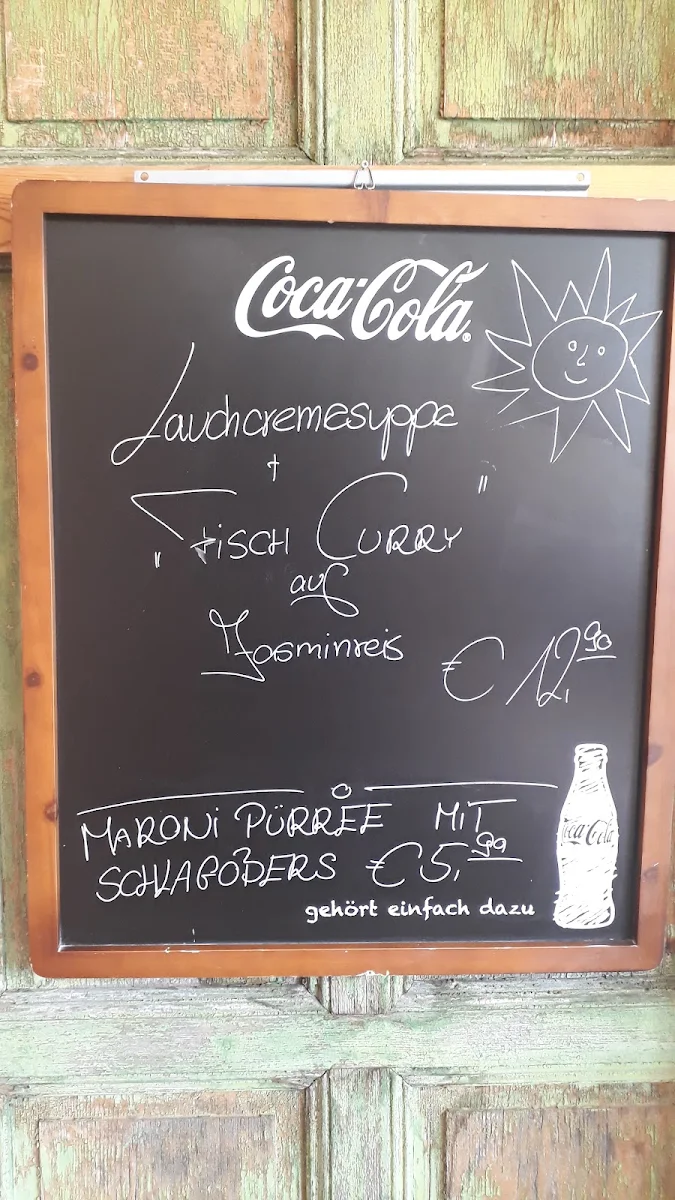 Coca-Cola
Lauchcremesuppe
+
"Fisch Curry"
auf
Jasminreis € 12,90
MARONI PÜRRÉE MIT
SCHLAGOBERS € 5,90
gehört einfach dazu
Coca-Cola